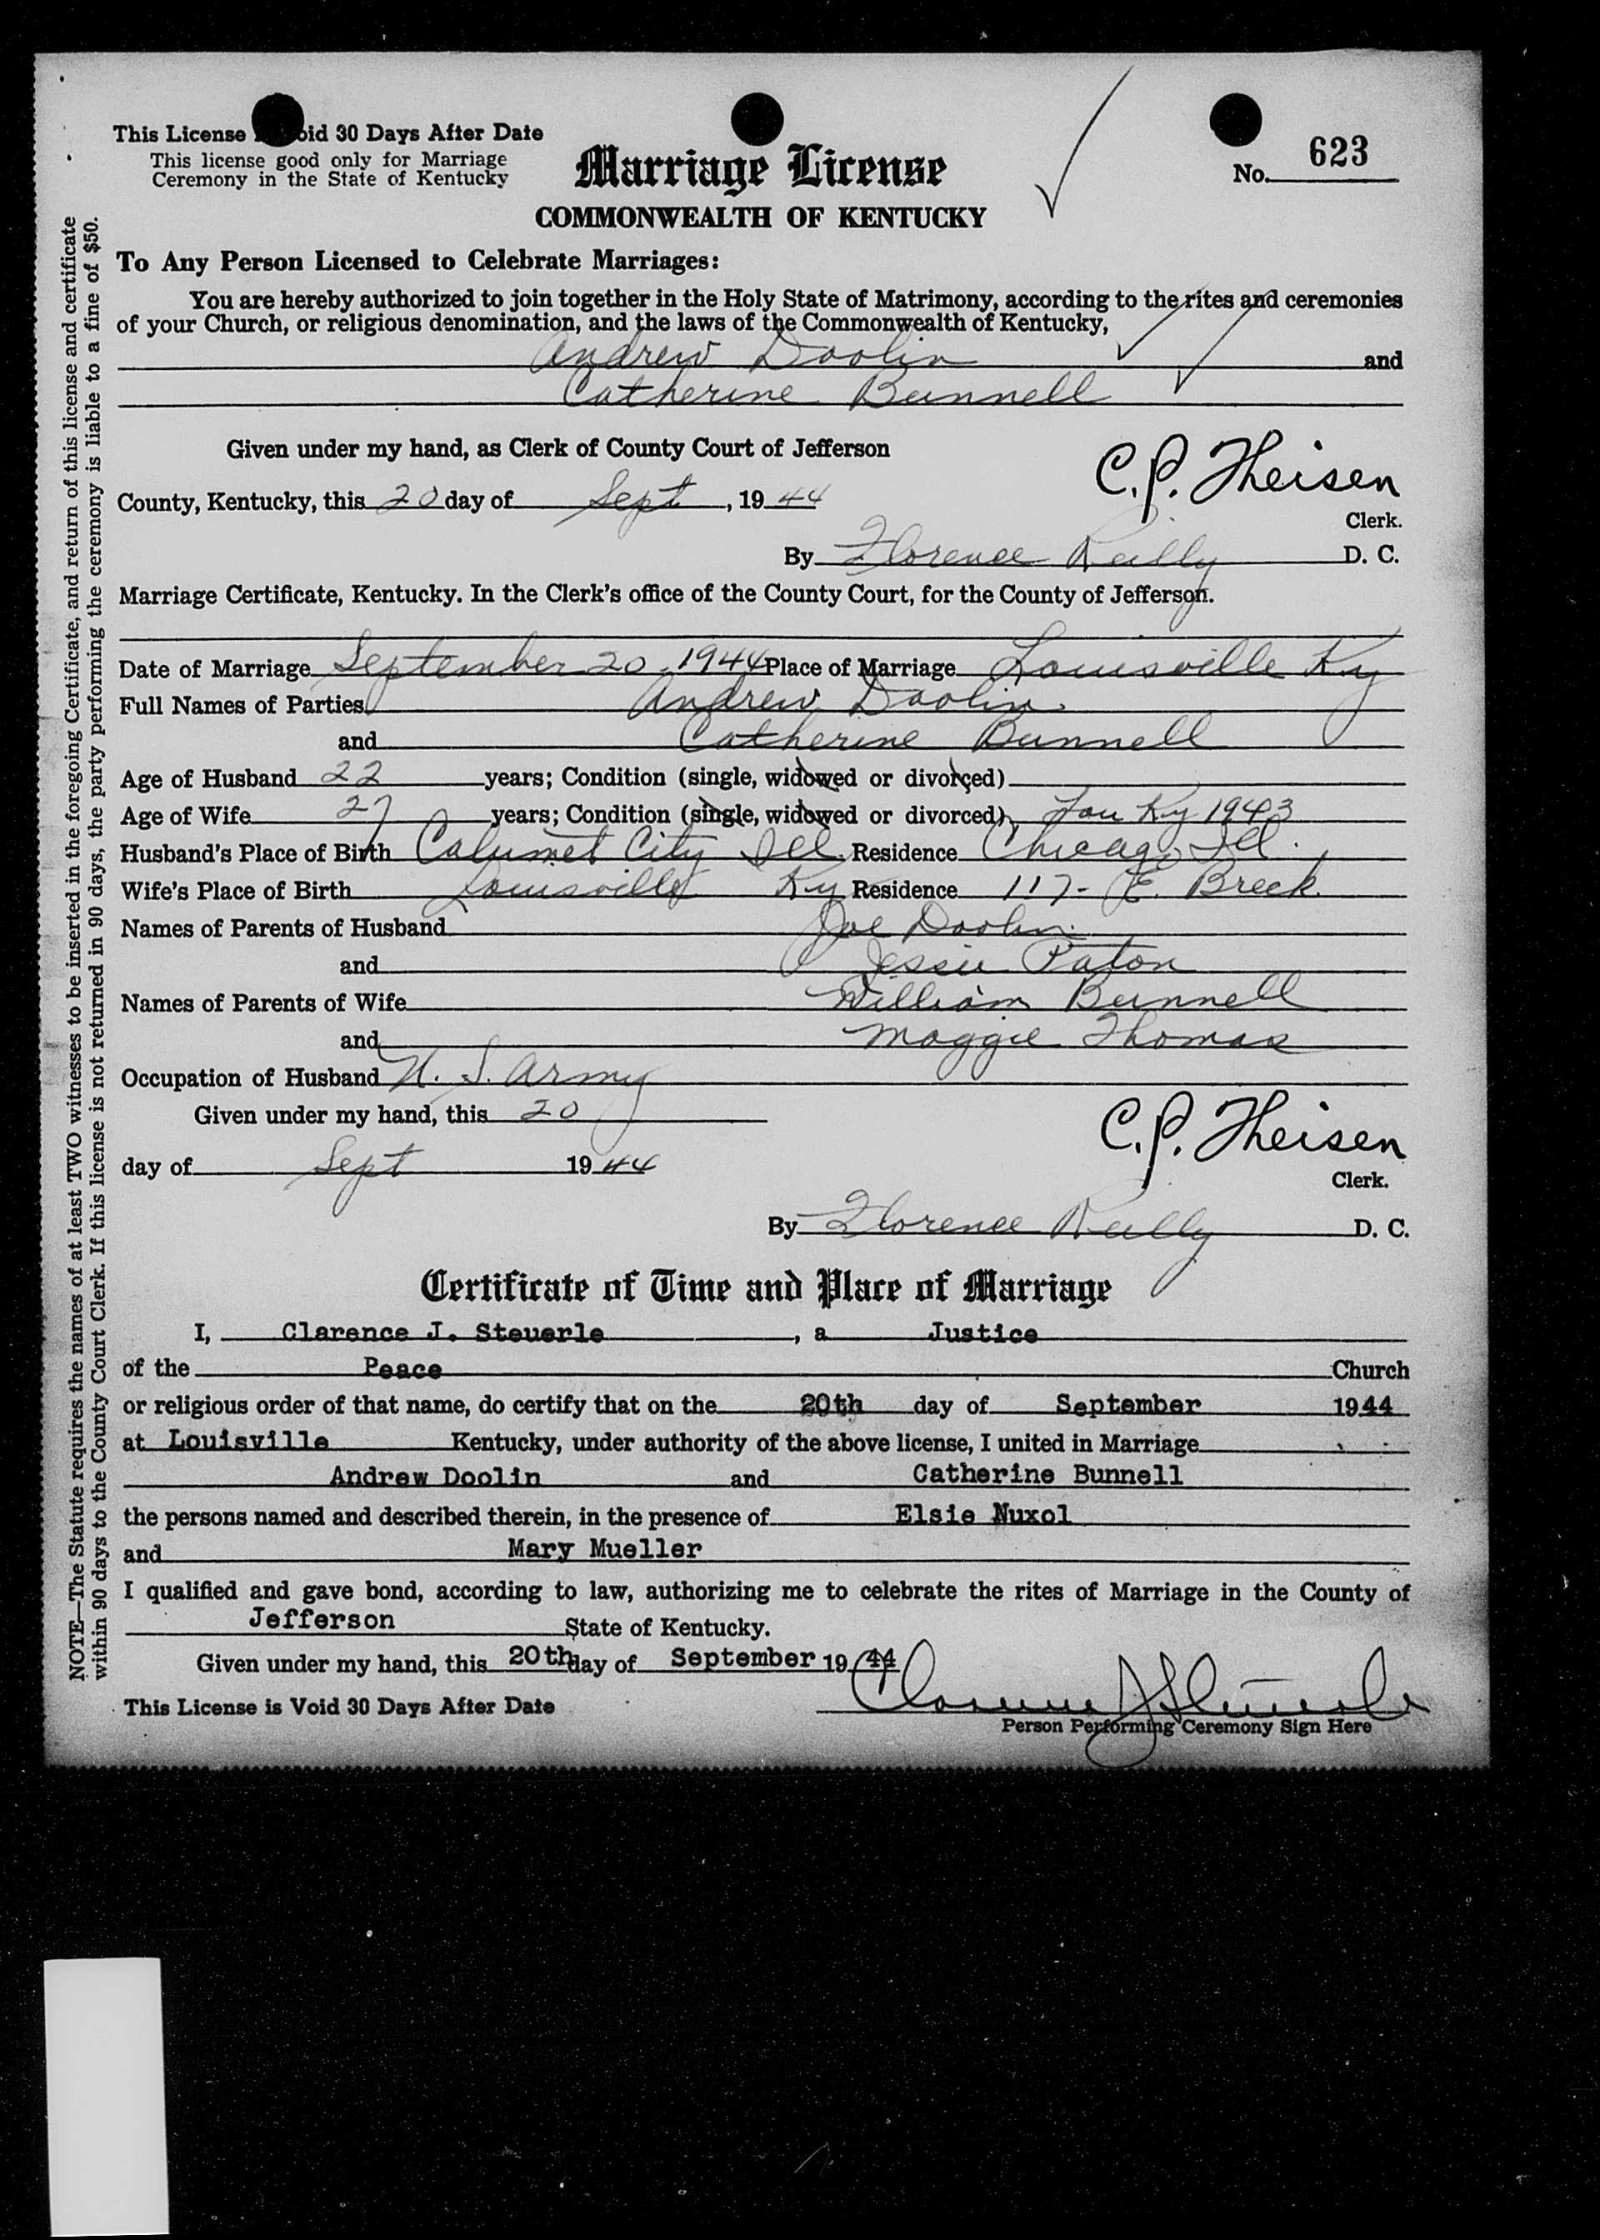 This License oid 30 Days After Date
This license good only for Marriage
Ceremony in the State of Kentucky
Marriage License
No. 623
COMMONWEALTH OF KENTUCKY
To Any Person Licensed to Celebrate Marriages:
You are hereby authorized to join together in the Holy State of Matrimony, according to the rites and ceremonies
of your Church, or religious denomination, and the laws of the Commonwealth of Kentucky,
Andrew Doolin and
Catherine Bunnell
Given under my hand, as Clerk of County Court of Jefferson
C. P. Theisen
County, Kentucky, this 20 day of Sept, 1944
Clerk.
By Florence Reilly D. C.
Marriage Certificate, Kentucky. In the Clerk's office of the County Court, for the County of Jefferson.
Date of Marriage September 20, 1944 Place of Marriage Louisville Ky
Full Names of Parties Andrew Doolin
and Catherine Bunnell
Age of Husband 22 years; Condition (single, widowed or divorced)
Age of Wife 27 years; Condition (single, widowed or divorced) Lou Ky 1943
Husband's Place of Birth Calumet City Ill. Residence Chicago Ill.
Wife's Place of Birth Louisville Ky Residence 117- E. Breck.
Names of Parents of Husband Joe Doolin
and Jessie Paton
Names of Parents of Wife William Bunnell
and Maggie Thomas
Occupation of Husband U. S. Army
Given under my hand, this 20
C. P. Theisen
day of Sept 1944
Clerk.
By Florence Reilly D. C.
Certificate of Time and Place of Marriage
I, Clarence J. Steuerle, a Justice
of the Peace Church
or religious order of that name, do certify that on the 20th day of September 1944
at Louisville Kentucky, under authority of the above license, I united in Marriage
Andrew Doolin and Catherine Bunnell
the persons named and described therein, in the presence of Elsie Nuxol
and Mary Mueller
I qualified and gave bond, according to law, authorizing me to celebrate the rites of Marriage in the County of
Jefferson State of Kentucky.
Given under my hand, this 20th day of September 1944
Clarence J Steuerle
This License is Void 30 Days After Date
Person Performing Ceremony Sign Here
NOTE—The Statute requires the names of at least TWO witnesses to be inserted in the foregoing Certificate, and return of this license and certificate
within 90 days to the County Court Clerk. If this license is not returned in 90 days, the party performing the ceremony is liable to a fine of $50.